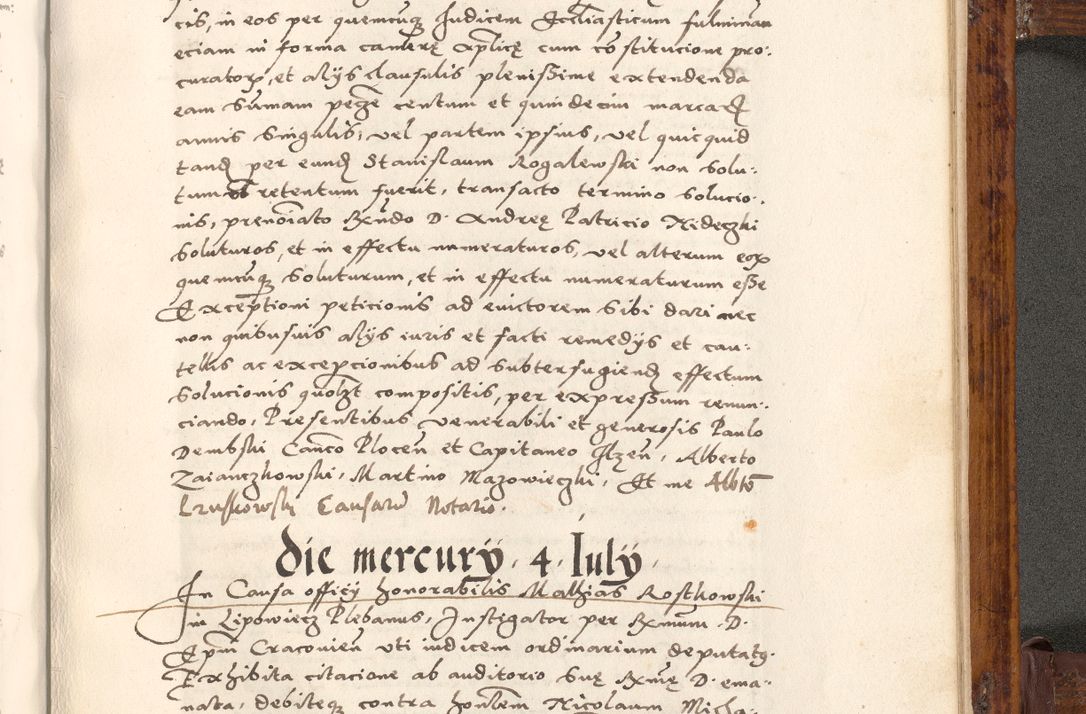 cis, in eos per quemcūqȝ Judicem Ecclīasticum fulminan
eciam in forma camerę Aplicę cum cōstitucione pro:
curatorꝝ, et alijs clausulis plenissime extendenda
eam Sūmam pēgzę centum et quindecim marcarꝝ
annis Singulis, vel partem ipsius, vel quicquid
tandē per eundē Stanislaum Rogalewski non Solu:
tum et retentum fuerit, transacto termino Solucio:
nis, prenōiato Rx̄ndo D. Andreę Patricio Nideczki
Soluturos, et in effectu numeraturos, vel alterum eoꝝ
quemcūqȝ Soluturum, et in effectu numeraturum esse
Excep̄tioni peticionis ad euictorem Sibi dari nec
non quibusuis alijs iuris et facti remedijs et cau:
tellis ac excepcionibus ad Subterfugiendē effectum
Solucionis quolȝt compositis, per expressum renun:
ciando, Presentibus venerabili et generosis Paulo
Dembski Canco Plocen̄ et Capitaneo Ilzen̄, Alberto
Zaianczkowski, Martino Mazowieczki, Et me Albto
Lruskowski Causarū Notario.
Die mercurij . 4 . Iulij .
In Causa officij honorabilis Mathias Rostkowski
in Lipowiecz Plebanus, Instigator per Rx̄mum . D.
Epm̄ Cracouien̄ vti iudicem ordinarium deputatꝰ.
Exhibita citacione ab auditorio Suę Rx̄mę D. ema:
nata, debiteqȝ contra hon̄lem Nicolaum Micha: